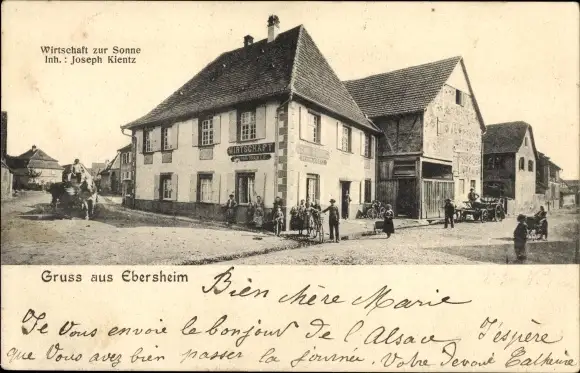 Wirtschaft zur Sonne
Inh.: Joseph Kientz
WIRTSCHAFT
Gruss aus Ebersheim
Bien chère Marie
Je Vous envoie le bonjour de l'Alsace J'espère
que Vous avez bien passer la journée. Votre devoué